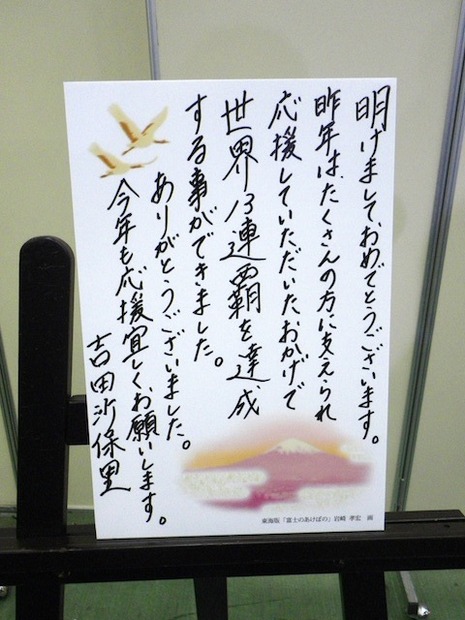 明けましておめでとうございます。
昨年は、たくさんの方に支えられ
応援していただいたおかげで
世界13連覇を達成
する事ができました。
ありがとうございました。
今年も応援宜しくお願いします。
吉田沙保里
東海版「富士のあけぼの」岩崎 孝宏 画